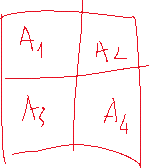 A1 A2
A3 A4